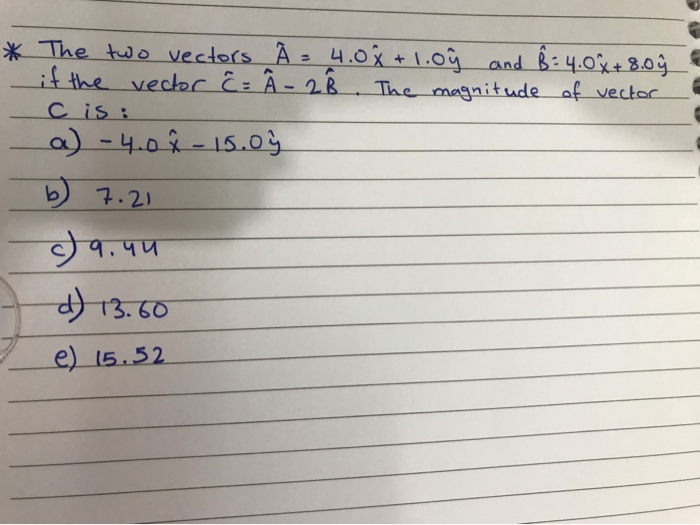 * The two vectors Â = 4.0x̂ + 1.0ŷ and B̂ = 4.0x̂ + 8.0ŷ
if the vector Ĉ = Â - 2B̂. The magnitude of vector
C is:
a) - 4.0 x̂ - 15.0ŷ
b) 7.21
c) 9.44
d) 13.60
e) 15.52